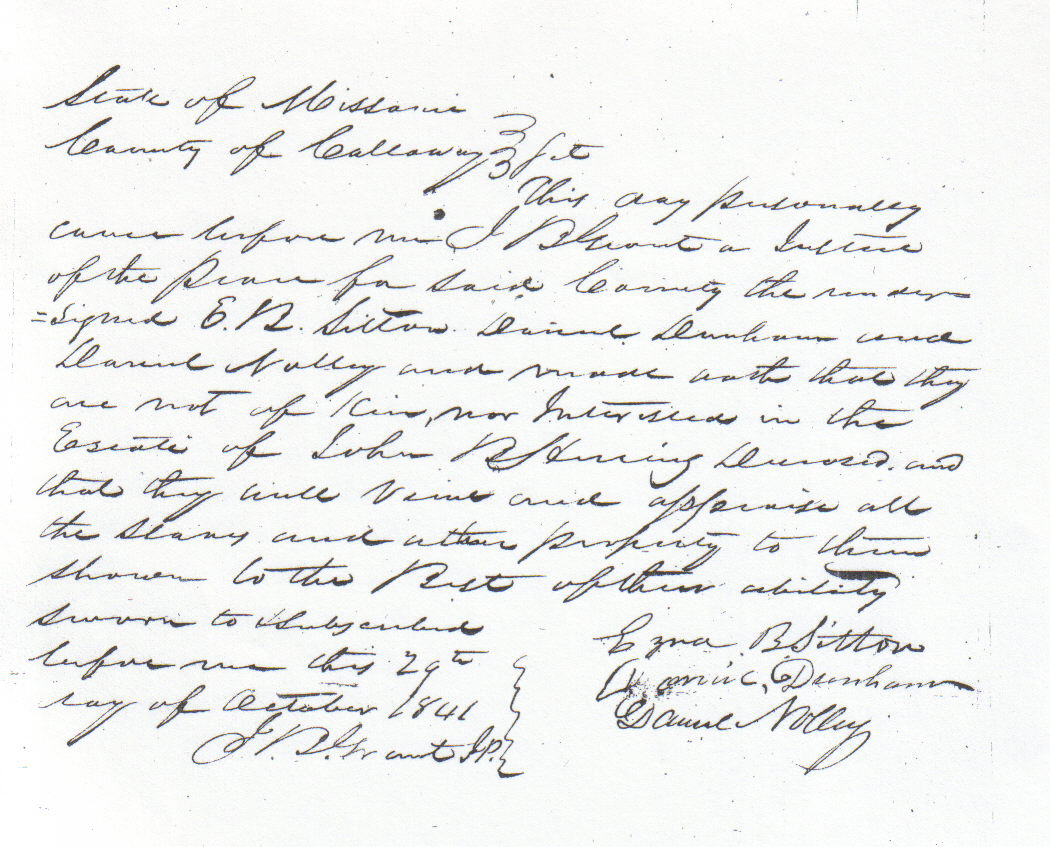 State of Missourie
County of Callaway } Sct
This day personally
came before me J B Grant a Justice
of the Peace for said County the under
=signed E. B. Sitton Daniel Dunham and
Daniel Nolley and made oath that they
are not of Kin, nor Interested in the
Estate of John B Herring Deceased. and
that they will View and appraise all
the slaves and other property to them
shown to the Best of their ability
sworn to & Subscribed
before me this 29th
day of October 1841
J. B. Grant J.P.
Ezra B Sitton
Dunham
Daniel Nolley